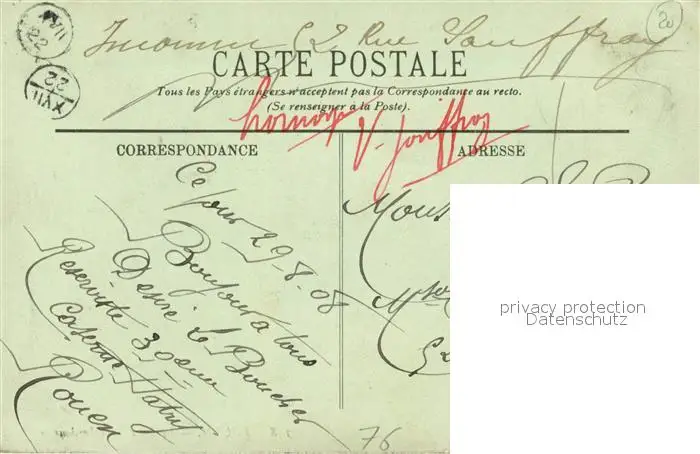 Inconnu 52 Rue Jouffroy
20
XVII
22
XVII
22
CARTE POSTALE
Tous les Pays étrangers n'acceptent pas la Correspondance au recto.
(Se renseigner à la Poste).
V. Jouffroy
CORRESPONDANCE
Ce jour 29-8-08
Bonjour a tous
Desiré Le Boucher
Reserviste 30eme
Caserne Hatry
Rouen
ADRESSE
Mons
52
privacy protection
Datenschutz
76